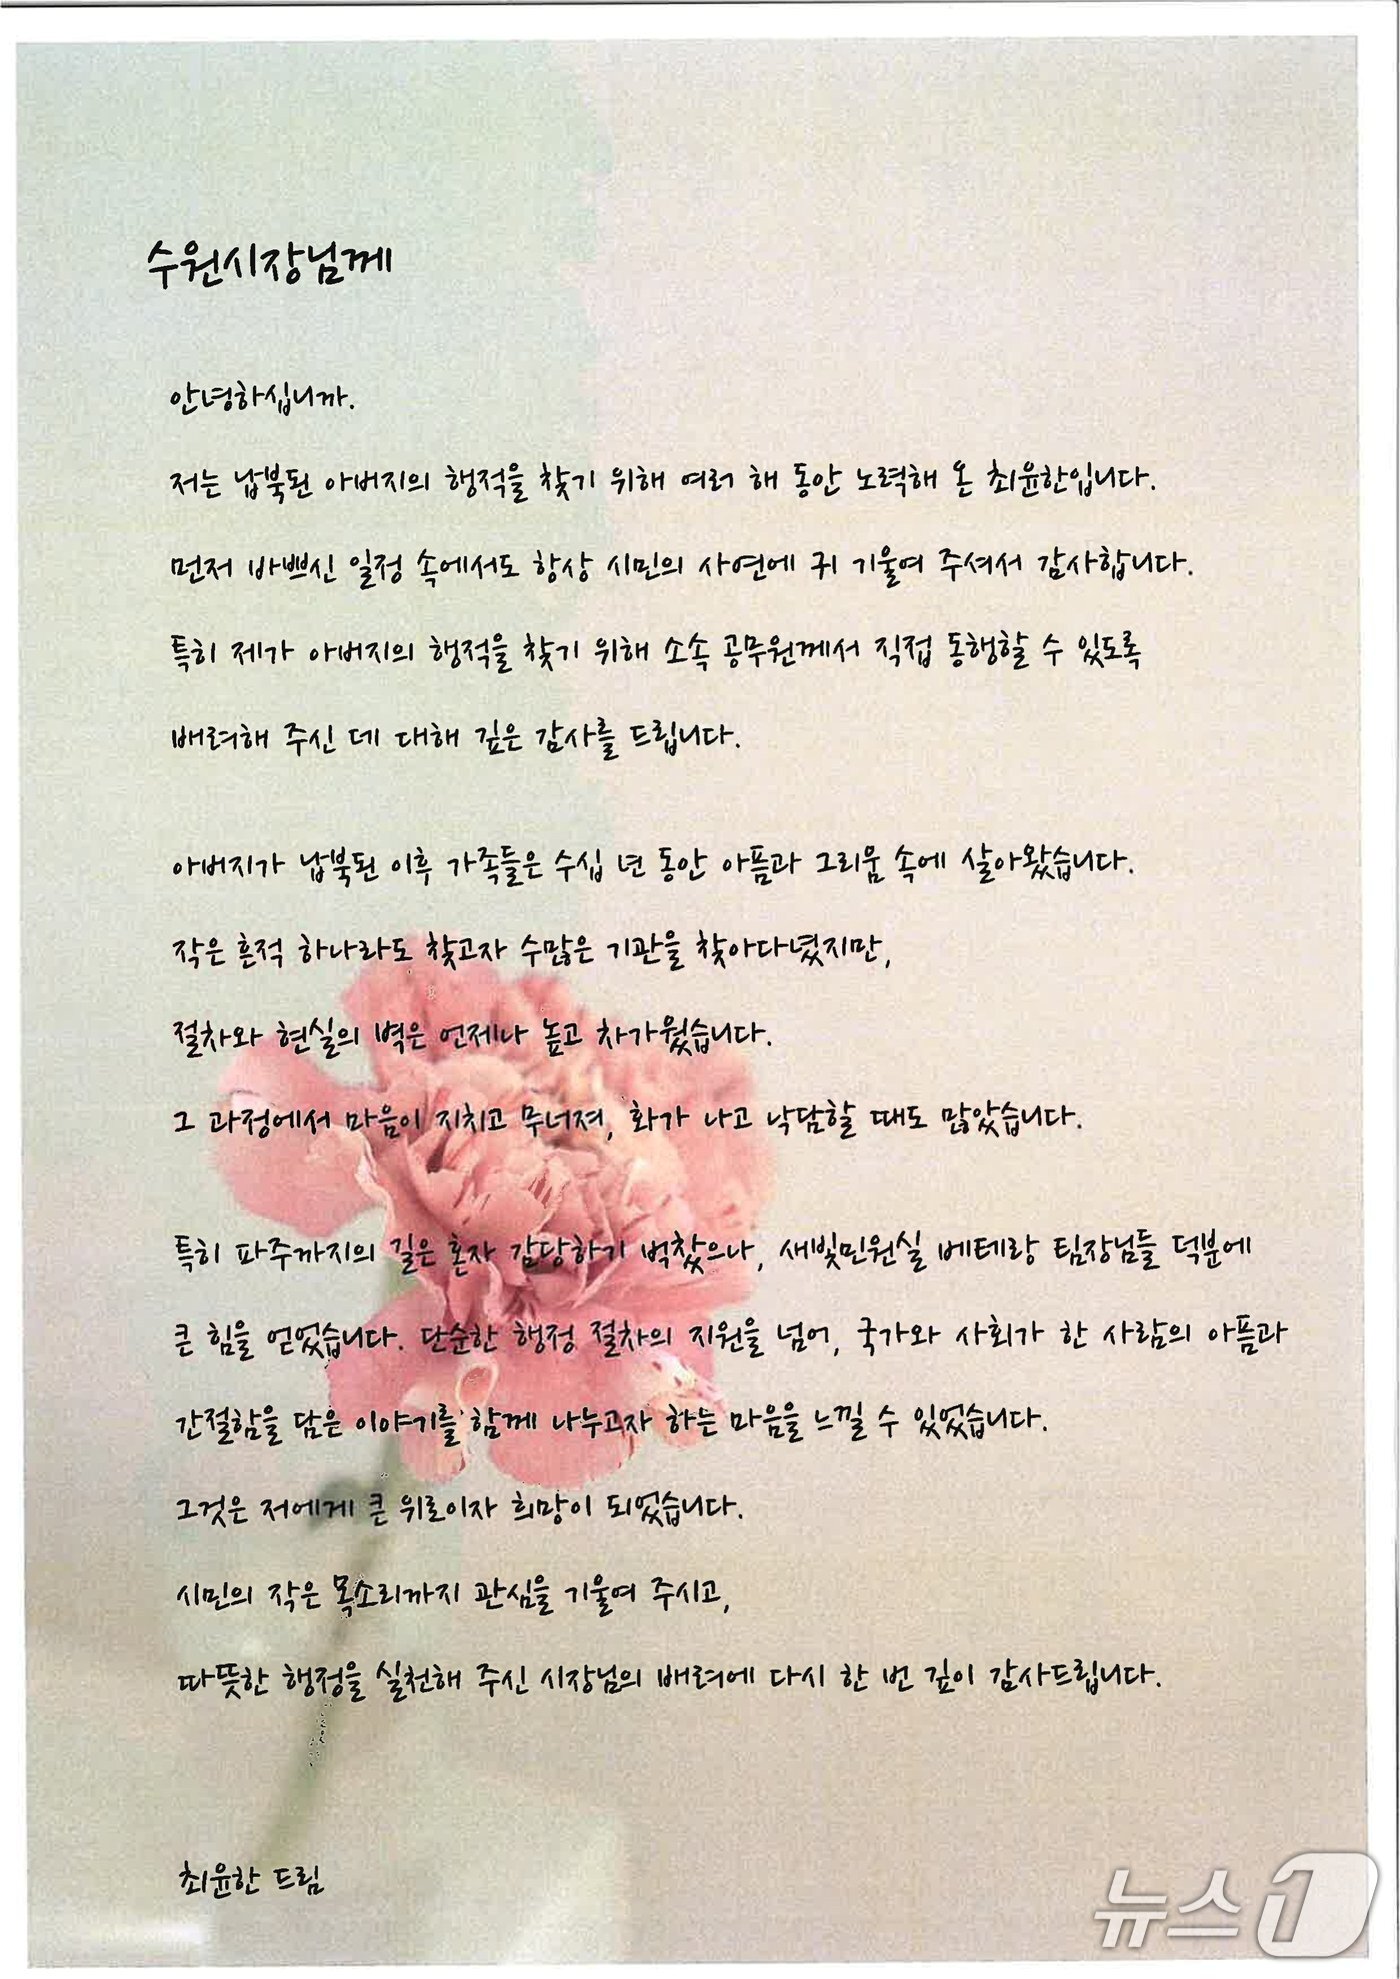 수원시장님께
안녕하십니까.
저는 납북된 아버지의 행적을 찾기 위해 여러 해 동안 노력해 온 최윤한입니다.
먼저 바쁘신 일정 속에서도 항상 시민의 사연에 귀 기울여 주셔서 감사합니다.
특히 제가 아버지의 행적을 찾기 위해 소속 공무원께서 직접 동행할 수 있도록
배려해 주신 데 대해 깊은 감사를 드립니다.
아버지가 납북된 이후 가족들은 수십 년 동안 아픔과 그리움 속에 살아왔습니다.
작은 흔적 하나라도 찾고자 수많은 기관을 찾아다녔지만,
절차와 현실의 벽은 언제나 높고 차가웠습니다.
그 과정에서 마음이 지치고 무너져, 화가 나고 낙담할 때도 많았습니다.
특히 파주까지의 길은 혼자 감당하기 벅찼으나, 새빛민원실 베테랑 팀장님들 덕분에
큰 힘을 얻었습니다. 단순한 행정 절차의 지원을 넘어, 국가와 사회가 한 사람의 아픔과
간절함을 담은 이야기를 함께 나누고자 하는 마음을 느낄 수 있었습니다.
그것은 저에게 큰 위로이자 희망이 되었습니다.
시민의 작은 목소리까지 관심을 기울여 주시고,
따뜻한 행정을 실천해 주신 시장님의 배려에 다시 한 번 깊이 감사드립니다.
최윤한 드림
뉴스1